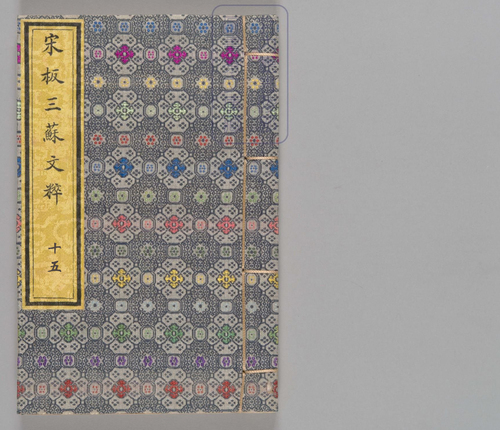 宋板三蘇文粹
十五